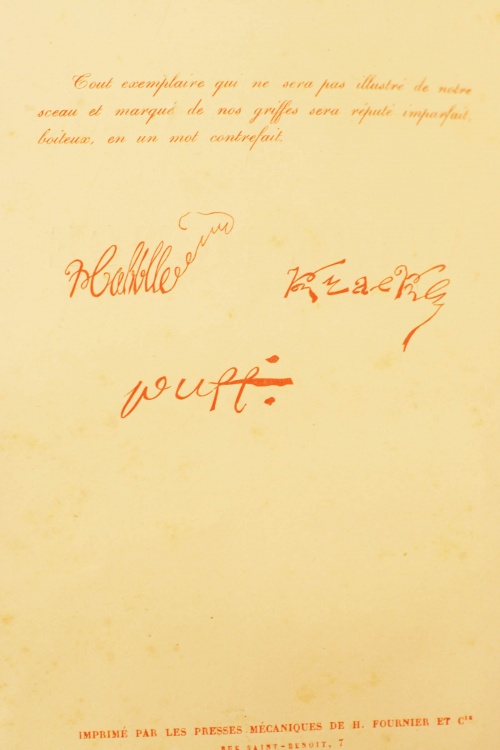 Tout exemplaire qui ne sera pas illustré de notre
sceau et marqué de nos griffes sera réputé imparfait,
boiteux, en un mot contrefait.
Hahblle
Krackq
puff
IMPRIMÉ PAR LES PRESSES MÉCANIQUES DE H. FOURNIER ET Cie
RUE SAINT-BENOIT, 7